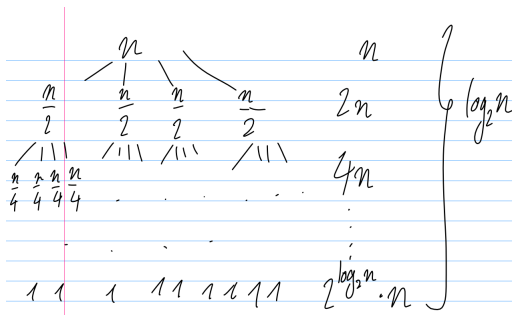 n n
n/2 n/2 n/2 n/2 2n log₂n
n/4 n/4 n/4 n/4 4n
1 1 1 1 1 1 1 1 1 2^(log₂n) · n